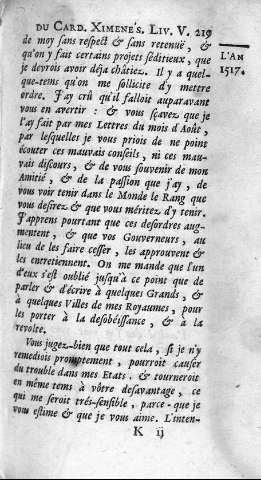 DU CARD. XIMENE'S. LIV. V. 219
de moy sans respect & sans retenuë, &
L'AN
qu'on y fait certains projets séditieux, que
1517.
je devrois avoir déja châtiez. Il y a quel-
que-tems qu'on me sollicite d'y mettre
ordre. J'ay crû qu'il falloit auparavant
vous en avertir : & vous sçavez que je
l'ay fait par mes Lettres du mois d'Août,
par lesquelles je vous priois de ne point
écouter ces mauvais conseils, ni ces mau-
vais discours, & de vous souvenir de mon
Amitié, & de la passion que j'ay, de
vous voir tenir dans le Monde le Rang que
vous desirez & que vous méritez d'y tenir.
J'apprens pourtant que ces desordres aug-
mentent, & que vos Gouverneurs, au
lieu de les faire cesser, les approuvent &
les entretiennent. On me mande que l'un
d'eux s'est oublié jusqu'à ce point que de
parler & d'écrire à quelques Grands, &
à quelques Villes de mes Royaumes, pour
les porter à la desobéissance, & à la
revolte.
Vous jugez-bien que tout cela, si je n'y
remediois promptement, pourroit causer
du trouble dans mes Etats, & tourneroit
en même tems à vôtre desavantage, ce
qui me seroit trés-sensible, parce-que je
vous estime & que je vous aime. L'inten-
K ij